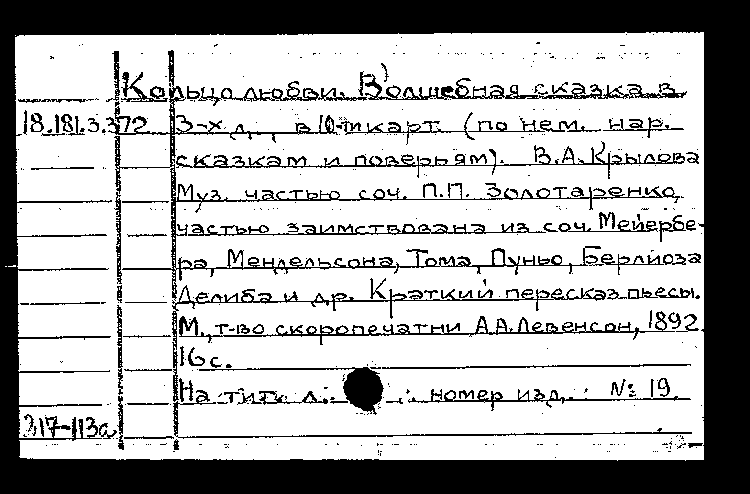 Кольцо любви. Волшебная сказка в
18.181.3.372 3-х д., в 10-ти карт. (по нем. нар.
сказкам и поверьям). В.А.Крылова
Муз. частью соч. П.П. Золотаренко,
частью заимствована из соч. Мейербе-
ра, Мендельсона, Тома, Пуньо, Берлиоза
Делиба и др. Краткий пересказ пьесы.
М., т-во скоропечатни А.А.Левенсон, 1892.
16 с.
На тит. л.: номер изд.: № 19.
317-113а